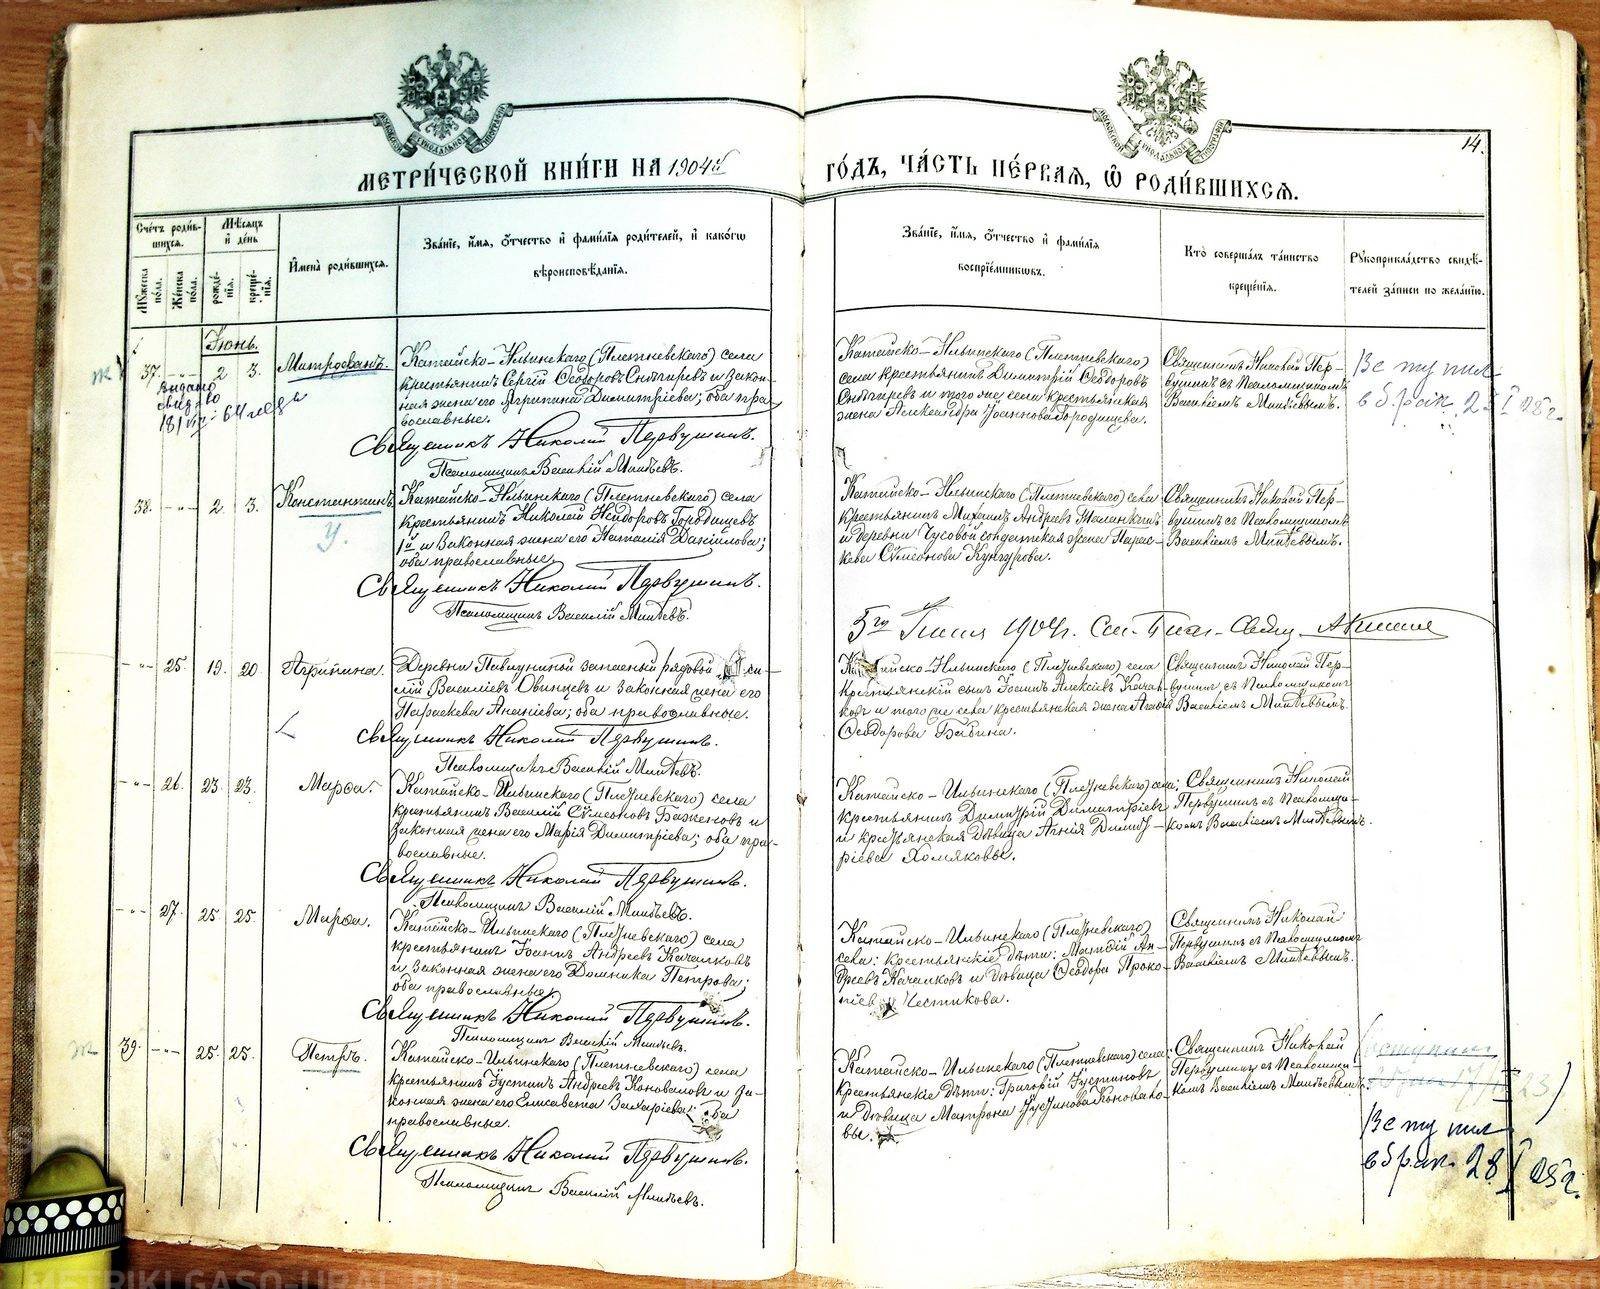 14.
МЕТРИ́ЧЕСКОЙ КНИ́ГИ НА 1904й
ГО́ДЪ, ЧА́СТЬ ПЕ́РВАЯ, Ѡ РОДИ́ВШИХСЯ.
Сче́тъ роди́в-
шихся.
Мꙋжеска по́ла.
Же́нска по́ла.
Мѣ́сяцъ
и҆ де́нь
рожде́-
нїя.
креще́-
нїя.
И҆мена̀ роди́вшихся.
Зва́нїе, и҆́мя, ѻ҆́тчество и҆ фами́лїя роди́телей, и҆ како́гѡ
вѣроисповѣ́данїя.
Зва́нїе, и҆́мя, ѻ҆́тчество и҆ фами́лїя
воспрїе́мниковъ.
Кто̀ соверша́лъ та́инство
креще́нїя.
Рꙋкоприкла́дство свидѣ́-
телей за́писи по жела́нїю.
Іюнь.
37. -"- 2 3. Митрофанъ.
Катайско-Ильинскаго (Плетневскаго) села
крестьянинъ Сергій Ѳеодоровъ Снѣгиревъ и закон-
ная жена его Агрипина Димитріева; оба пра-
вославные.
Священникъ Николай Первушинъ.
Псаломщикъ Василій Минѣевъ.
Катайско-Ильинскаго (Плетневскаго)
села крестьянинъ Димитрій Ѳеодоровъ
Снѣгиревъ и того же села крестьянская
жена Александра Іоаннова Городищева.
Священникъ Николай Пер-
вушинъ съ Псаломщикомъ
Василіемъ Минѣевымъ.
Вступил
в брак 28 I 25 г.
выдано
свид-во
38. -"- 2. 3. Константинъ.
У.
Катайско-Ильинскаго (Плетневскаго) села
крестьянинъ Николай Исидоровъ Городищевъ
1й и законная жена его Наталія Даніилова;
оба православные.
Священникъ Николай Первушинъ.
Псаломщикъ Василій Минѣевъ.
Катайско-Ильинскаго (Плетневскаго) села
крестьянинъ Михаилъ Андреевъ Таланкинъ
и деревни Чусовой солдатская жена Парас-
кева Сѵмеонова Кунгурова.
Священникъ Николай Пер-
вушинъ съ Псаломщикомъ
Василіемъ Минѣевымъ.
5го Іюня 1904 г.
-"- 25. 19. 20. Агрипина.
Деревни Павлуниной запасный рядовой
лій Василіевъ Овинцевъ и законная жена его
Параскева Ананіева; оба православные.
Священникъ Николай Первушинъ.
Псаломщикъ Василій Минѣевъ.
Катайско-Ильинскаго (Плетневскаго) села
крестьянскій сынъ Іоаннъ Алексіевъ Качал-
ковъ и того же села крестьянская жена Агафія
Ѳеодорова Бабина.
Священникъ Николай Пер-
вушинъ съ Псаломщикомъ
Василіемъ Минѣевымъ.
-"- 26. 23. 23. Марѳа.
Катайско-Ильинскаго (Плетневскаго) села
крестьянинъ Василій Сѵмеоновъ Баженовъ и
законная жена его Марія Димитріева; оба пра-
вославные.
Священникъ Николай Первушинъ.
Псаломщикъ Василій Минѣевъ.
Катайско-Ильинскаго (Плетневскаго) села;
крестьянинъ Димитрій Димитріевъ
и крестьянская дѣвица Агнія Димит-
ріева Хомяковы.
Священникъ Николай
Первушинъ съ Псаломщи-
комъ Василіемъ Минѣевымъ.
-"- 27. 25. 25. Марѳа.
Катайско-Ильинскаго (Плетневскаго) села
крестьянинъ Іоаннъ Андреевъ Качалковъ
и законная жена его Домника Петрова;
оба православные.
Священникъ Николай Первушинъ.
Псаломщикъ Василій Минѣевъ.
Катайско-Ильинскаго (Плетневскаго)
села: крестьянскіе дѣти: Матѳій Ан-
дреевъ Качалковъ и дѣвица Ѳеодора Проко-
піева Честикова.
Священникъ Николай
Первушинъ съ Псаломщикомъ
Василіемъ Минѣевымъ.
39. -"- 25. 25. Петръ.
Катайско-Ильинскаго (Плетневскаго) села
крестьянинъ Іустинъ Андреевъ Коноваловъ и за-
конная жена его Елисавета Захаріева; оба
православные.
Священникъ Николай Первушинъ.
Псаломщикъ Василій Минѣевъ.
Катайско-Ильинскаго (Плетневскаго) села:
крестьянскіе дѣти: Григорій Іустиновъ
и дѣвица Матрона Іустинова Коновало-
вы.
Священникъ Николай
Первушинъ съ Псаломщи-
комъ Василіемъ Минѣевымъ.
Вступил
в брак 28 I 25 г.
METRIKI.GASO-URAL.RU